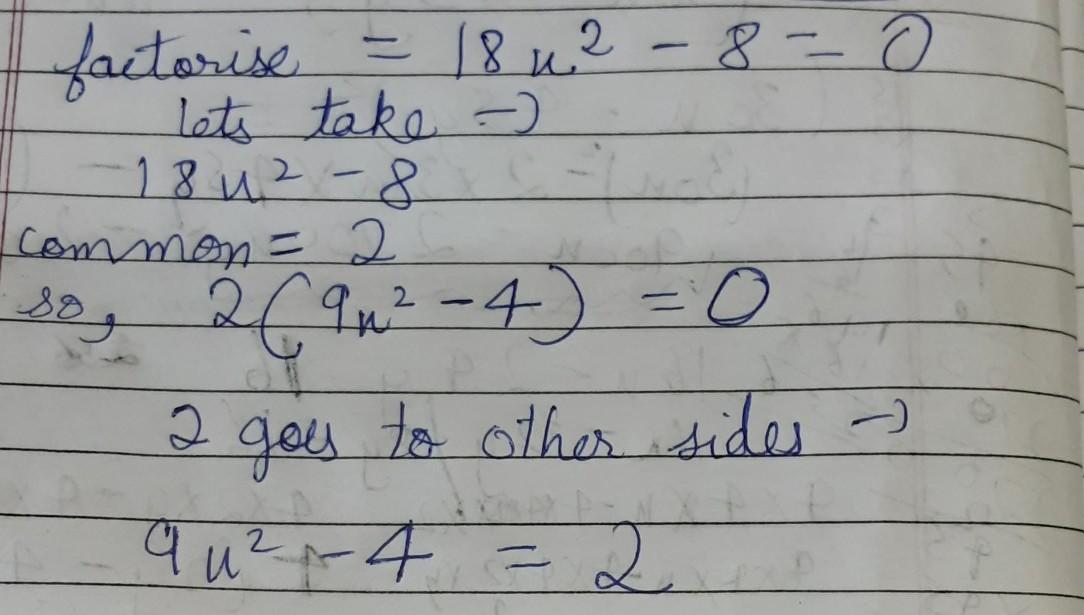 factorise = 18u² - 8 = 0
lets take →
18u² - 8
common = 2
so, 2(9u² - 4) = 0
2 goes to other sides →
9u² - 4 = 2